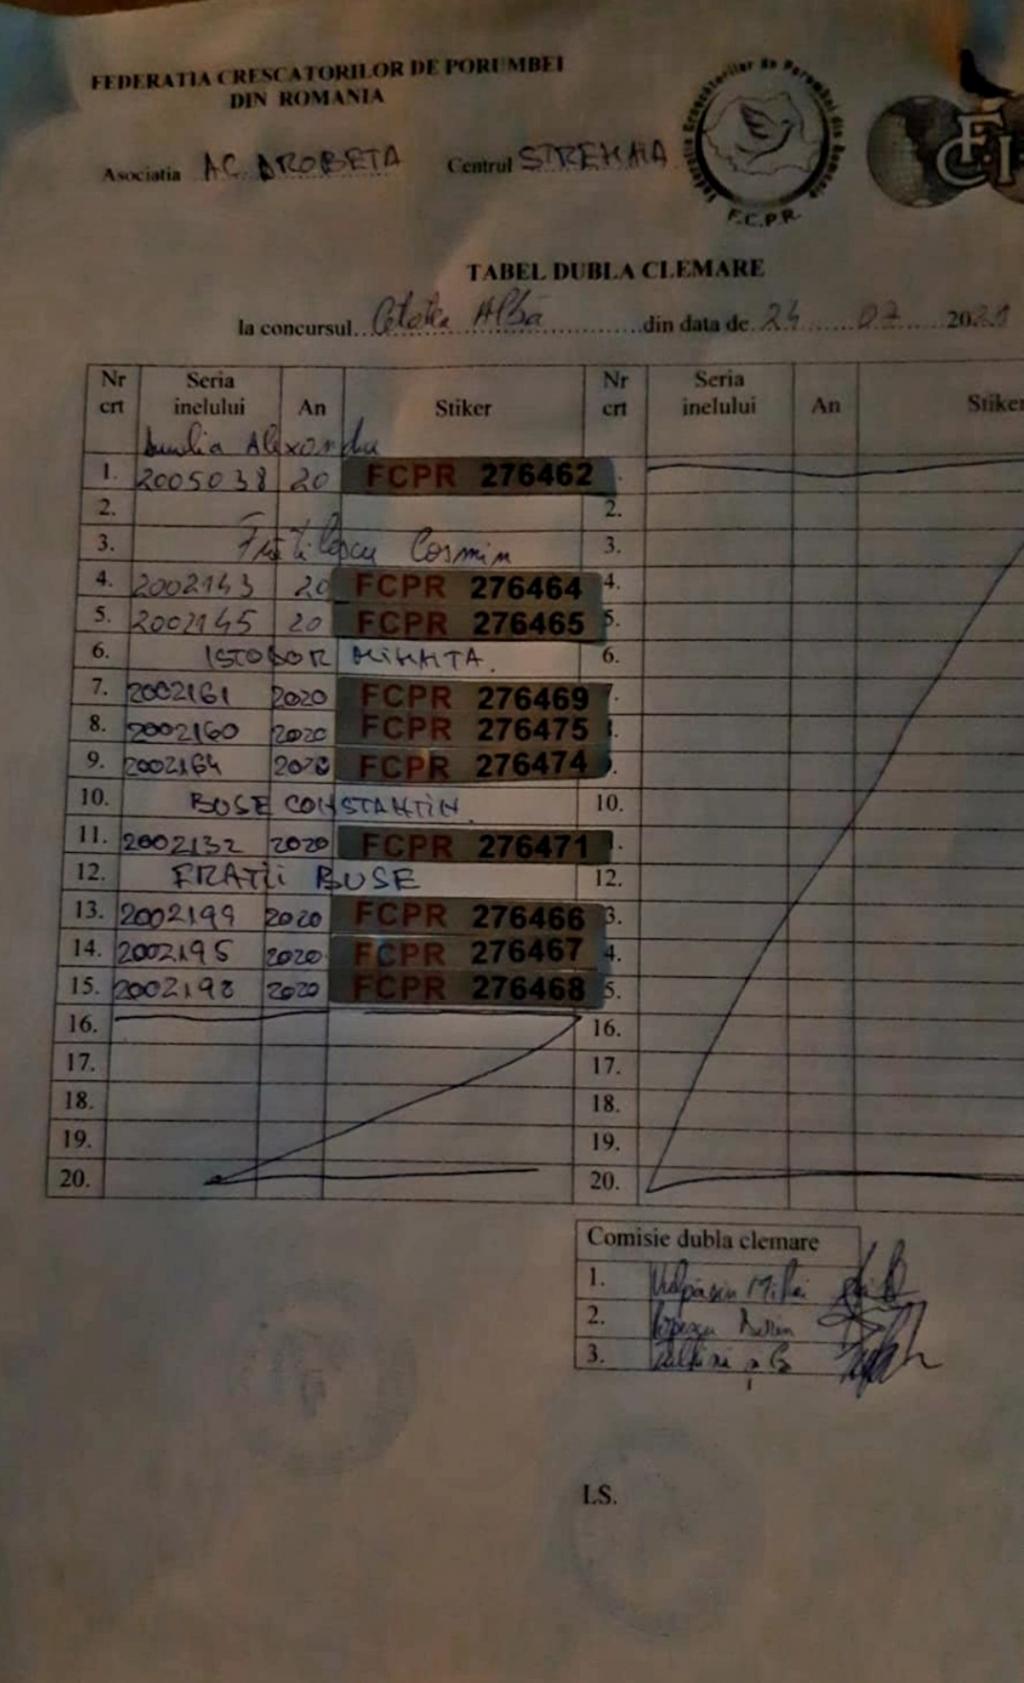 FEDERATIA CRESCATORILOR DE PORUMBEI
DIN ROMANIA
Asociatia A.C. DROBETA Centrul STREHAIA
Federatia Crescatorilor de Porumbei din Romania
F.C.P.R.
FCI
TABEL DUBLA CLEMARE
la concursul Cetatea Albă din data de 24 07 2021
Nr crt Seria inelului An Stiker Nr crt Seria inelului An Stiker
Alexandru
1. 2005038 20 FCPR 276462
2. 2.
3. Cosmin 3.
4. 2002143 20 FCPR 276464 4.
5. 2002145 20 FCPR 276465 5.
6. ISTODOR 6.
7. 2002161 2020 FCPR 276469
8. 2002160 2020 FCPR 276475
9. 2002164 2020 FCPR 276474
10. BUSE CONSTANTIN. 10.
11. 2002132 2020 FCPR 276471
12. FRAȚII BUSE 12.
13. 2002199 2020 FCPR 276466 3.
14. 2002195 2020 FCPR 276467 4.
15. 2002198 2020 FCPR 276468 5.
16. 16.
17. 17.
18. 18.
19. 19.
20. 20.
Comisie dubla clemare
1. Mihai
2.
3.
LS.